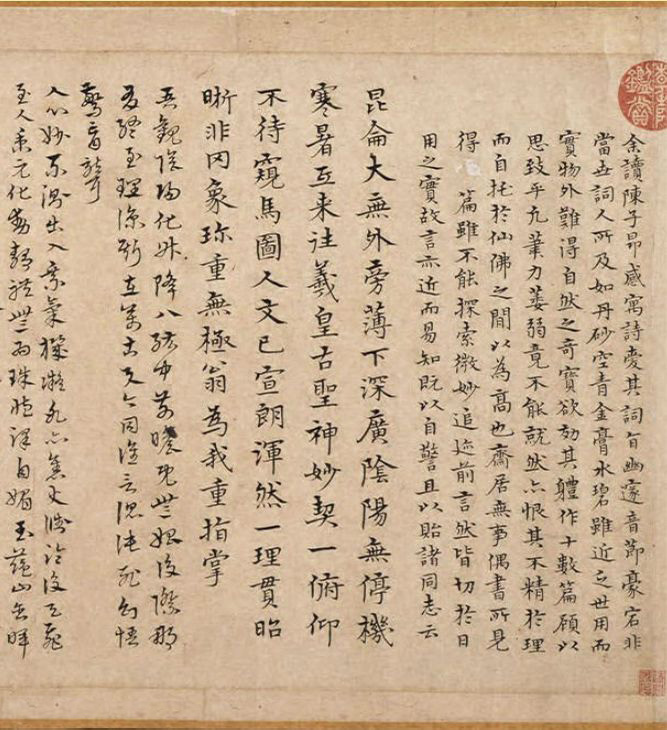 余讀陳子昂感寓詩愛其詞旨幽邃音節豪宕非
當世詞人所及如丹砂空青金膏水碧雖近乏世用而
實物外難得自然之奇寶欲効其體作十數篇顧以
思致平凡筆力萎弱竟不能就然亦恨其不精於理
而自托於仙佛之間以為高也齋居無事偶書所見
得 篇雖不能探索微妙追迹前言然皆切於日
用之實故言亦近而易知既以自警且以貽諸同志云
昆侖大無外旁薄下深廣陰陽無停機
寒暑互来往羲皇古聖神妙契一俯仰
不待窺馬圖人文已宣朗渾然一理貫昭
晰非罔象珍重無極翁為我重指掌
吾觀陰陽化升降八紘中前瞻既無始後際那
有終至理諒斯存萬古与今同誰言混沌死幻語
驚盲聾
人心妙不測出入乘氣機凝冰亦焦火淵淪復天飛
至人秉元化動靜體無為珠藏澤自媚玉蘊山含暉